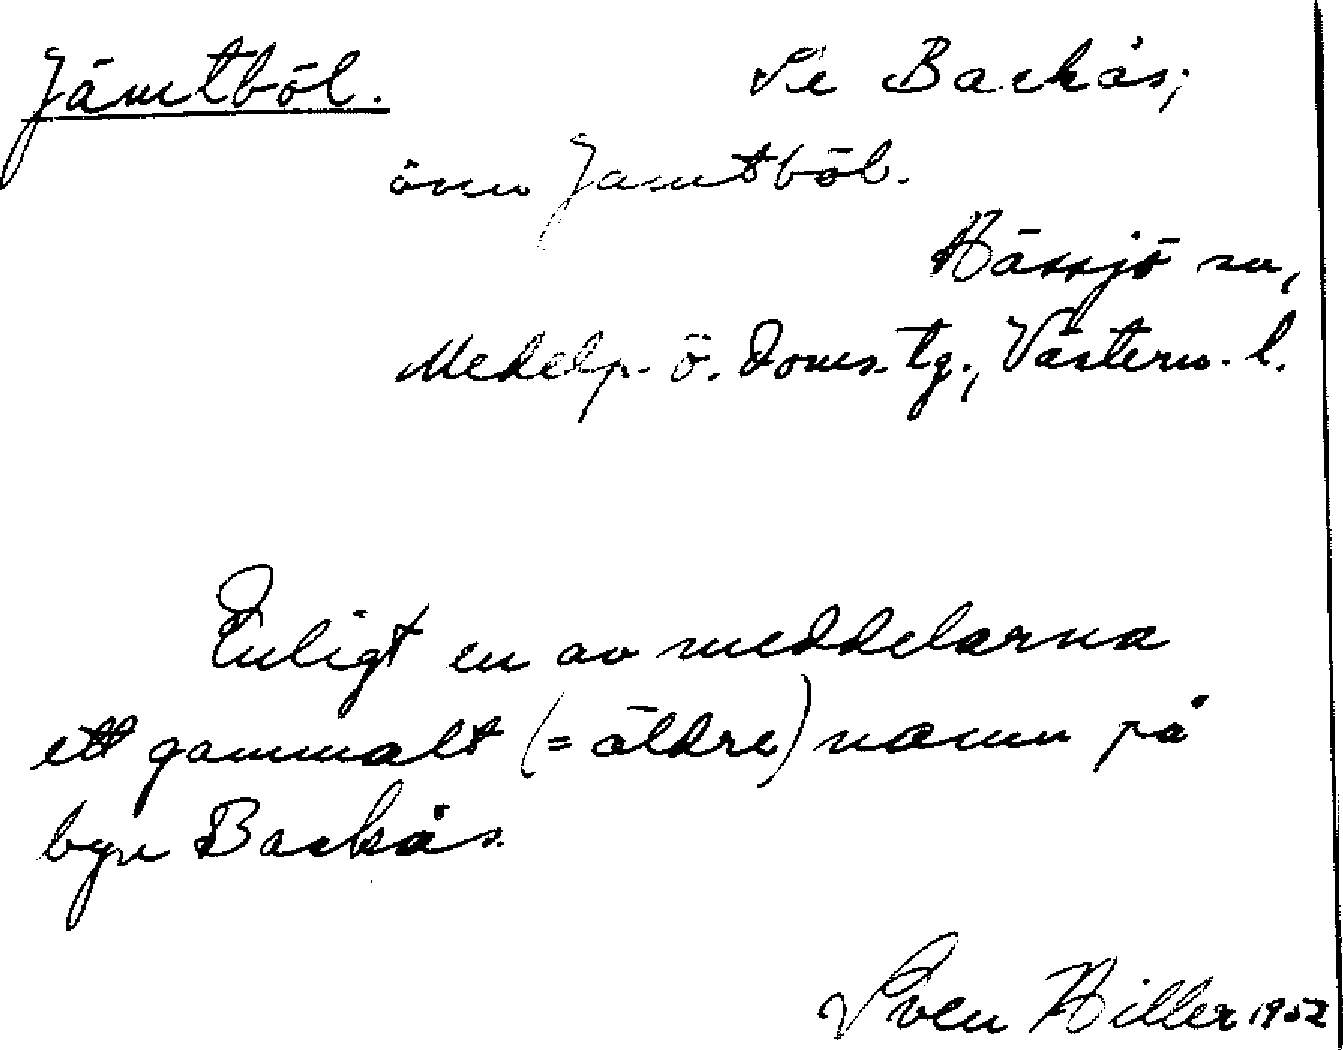 Jämtböl. Se Backås;
även Jamtböl.
Hässjö sn,
Medelp. ö. doms. tg., Västern. l.
Enligt en av meddelarna
ett gammalt (= äldre) namn på
byn Backås.
Sven Hiller 1952